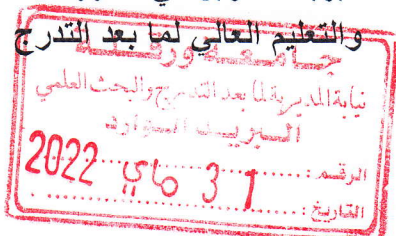 والتعليم العالي لما بعد التدرج
جامعة ورقلة
نيابة المديرية لما بعد التدرج والبحث العلمي
البريد الوارد
الرقم :
31 ماي 2022
التاريخ :